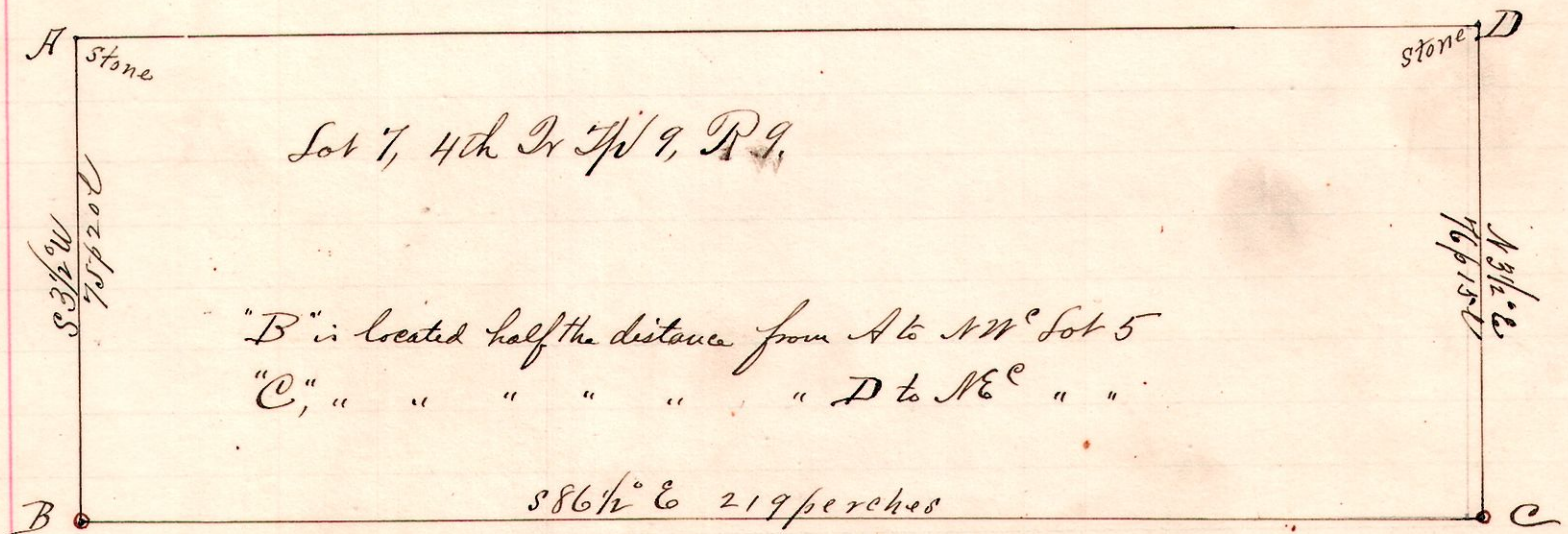 A
stone
stone
D
Lot 7, 4th Qr Tp 9, R 9.
S 3 1/2° W
75p 20l
N 3 1/2° E
76p 15l
"B" is located half the distance from A to NWc Lot 5
"C", " " " " " " D to NEc " "
S 86 1/2° E 219 perches
B
C